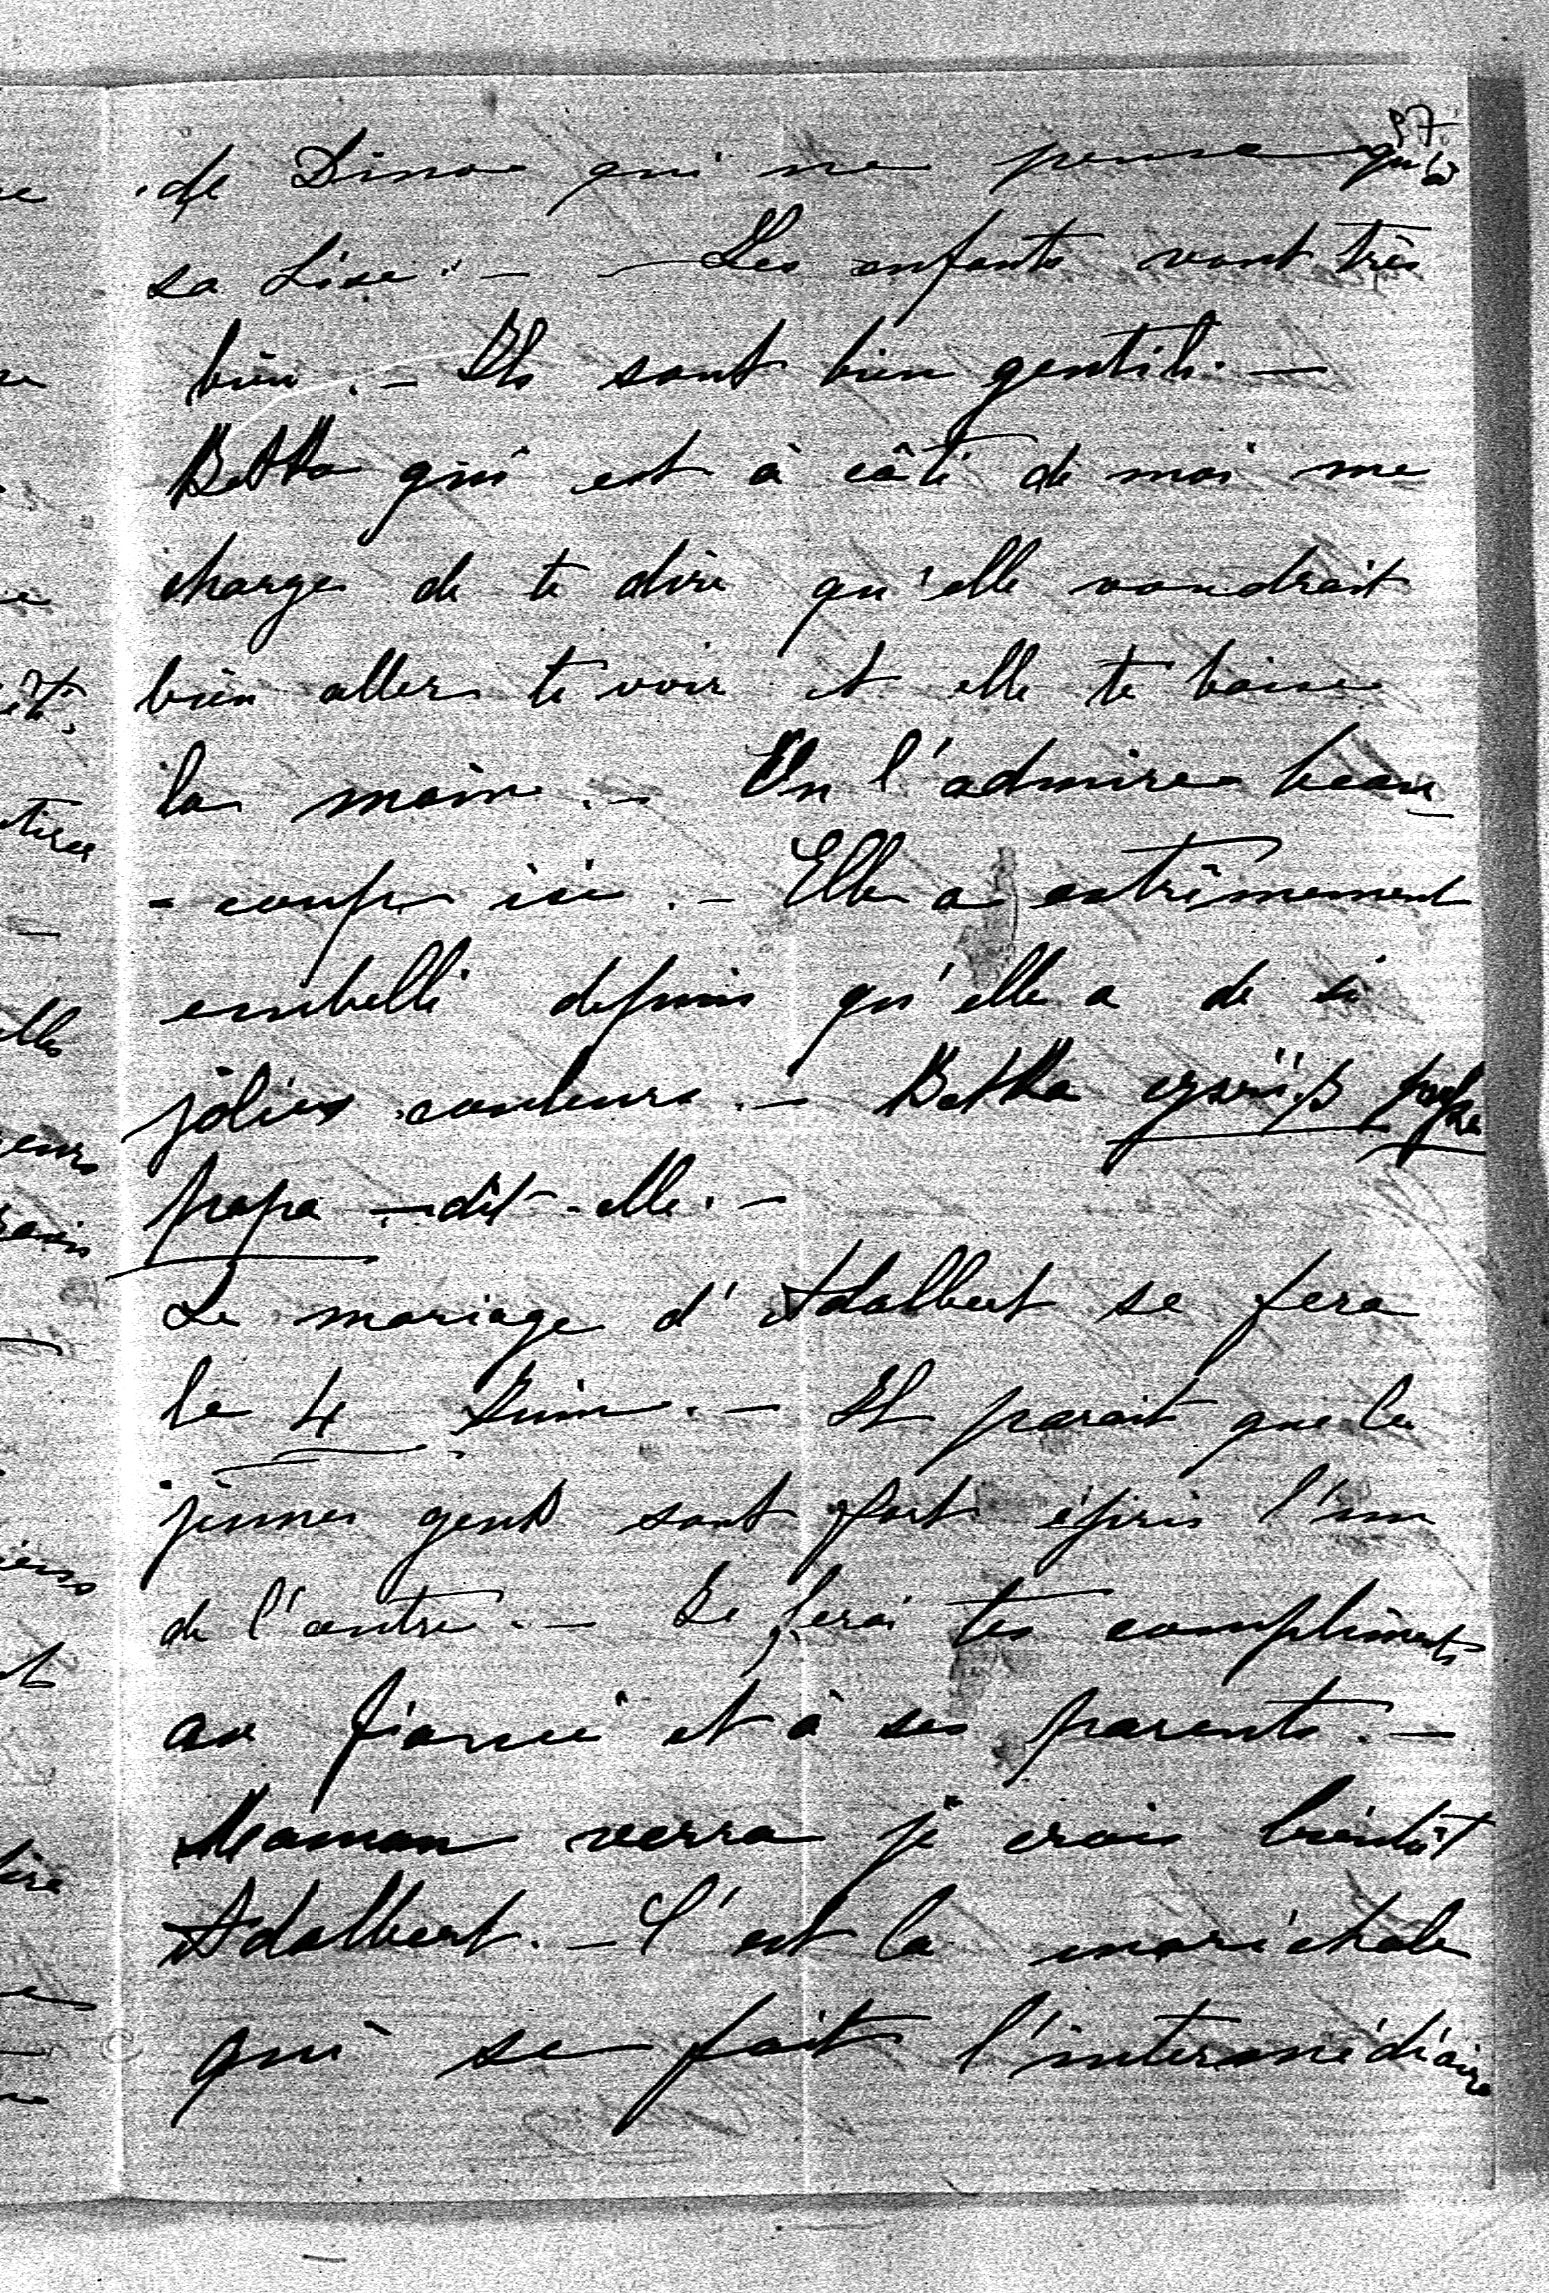 37.
de Dino qui ne pense qu'à
sa Lise. – – Les enfants vont très
bien. – Ils sont bien gentils. –
Betka qui est à côté de moi me
charge de te dire qu'elle voudrait
bien aller te voir et elle te baise
la main. – On l'admire beau
- coup ici. – Elle a extrêmement
embelli depuis qu'elle a de si
jolies couleurs. – Betka
papa – dit-elle. –
Le mariage d'Adalbert se fera
le 4 Juin. – Il parait que les
jeunes gens sont fort épris l'un
de l'autre. – Je ferai tes compliments
au fiancé et à ses parents. –
Maman verra je crois bientôt
Adalbert. – C'est la maréchale
qui se fait l'intermédiaire